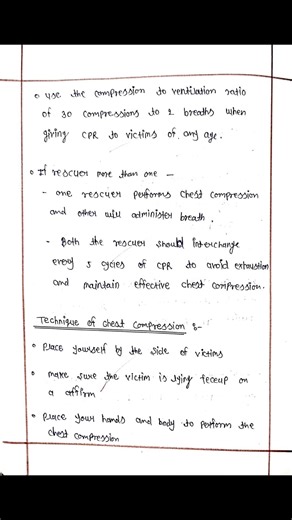 • use the compression to ventilation ratio
of 30 compressions to 2 breaths when
giving CPR to victims of any age.
• If rescuer more than one -
- one rescuer performs chest compression
and other will administer breath.
- Both the rescuer should interchange
every 5 cycles of CPR to avoid exhaustion
and maintain effective chest compression.
Technique of chest compression :-
• place yourself by the side of victims
• make sure the victim is lying feceup on
a affirm
• place your hands and body to perform the
chest compression